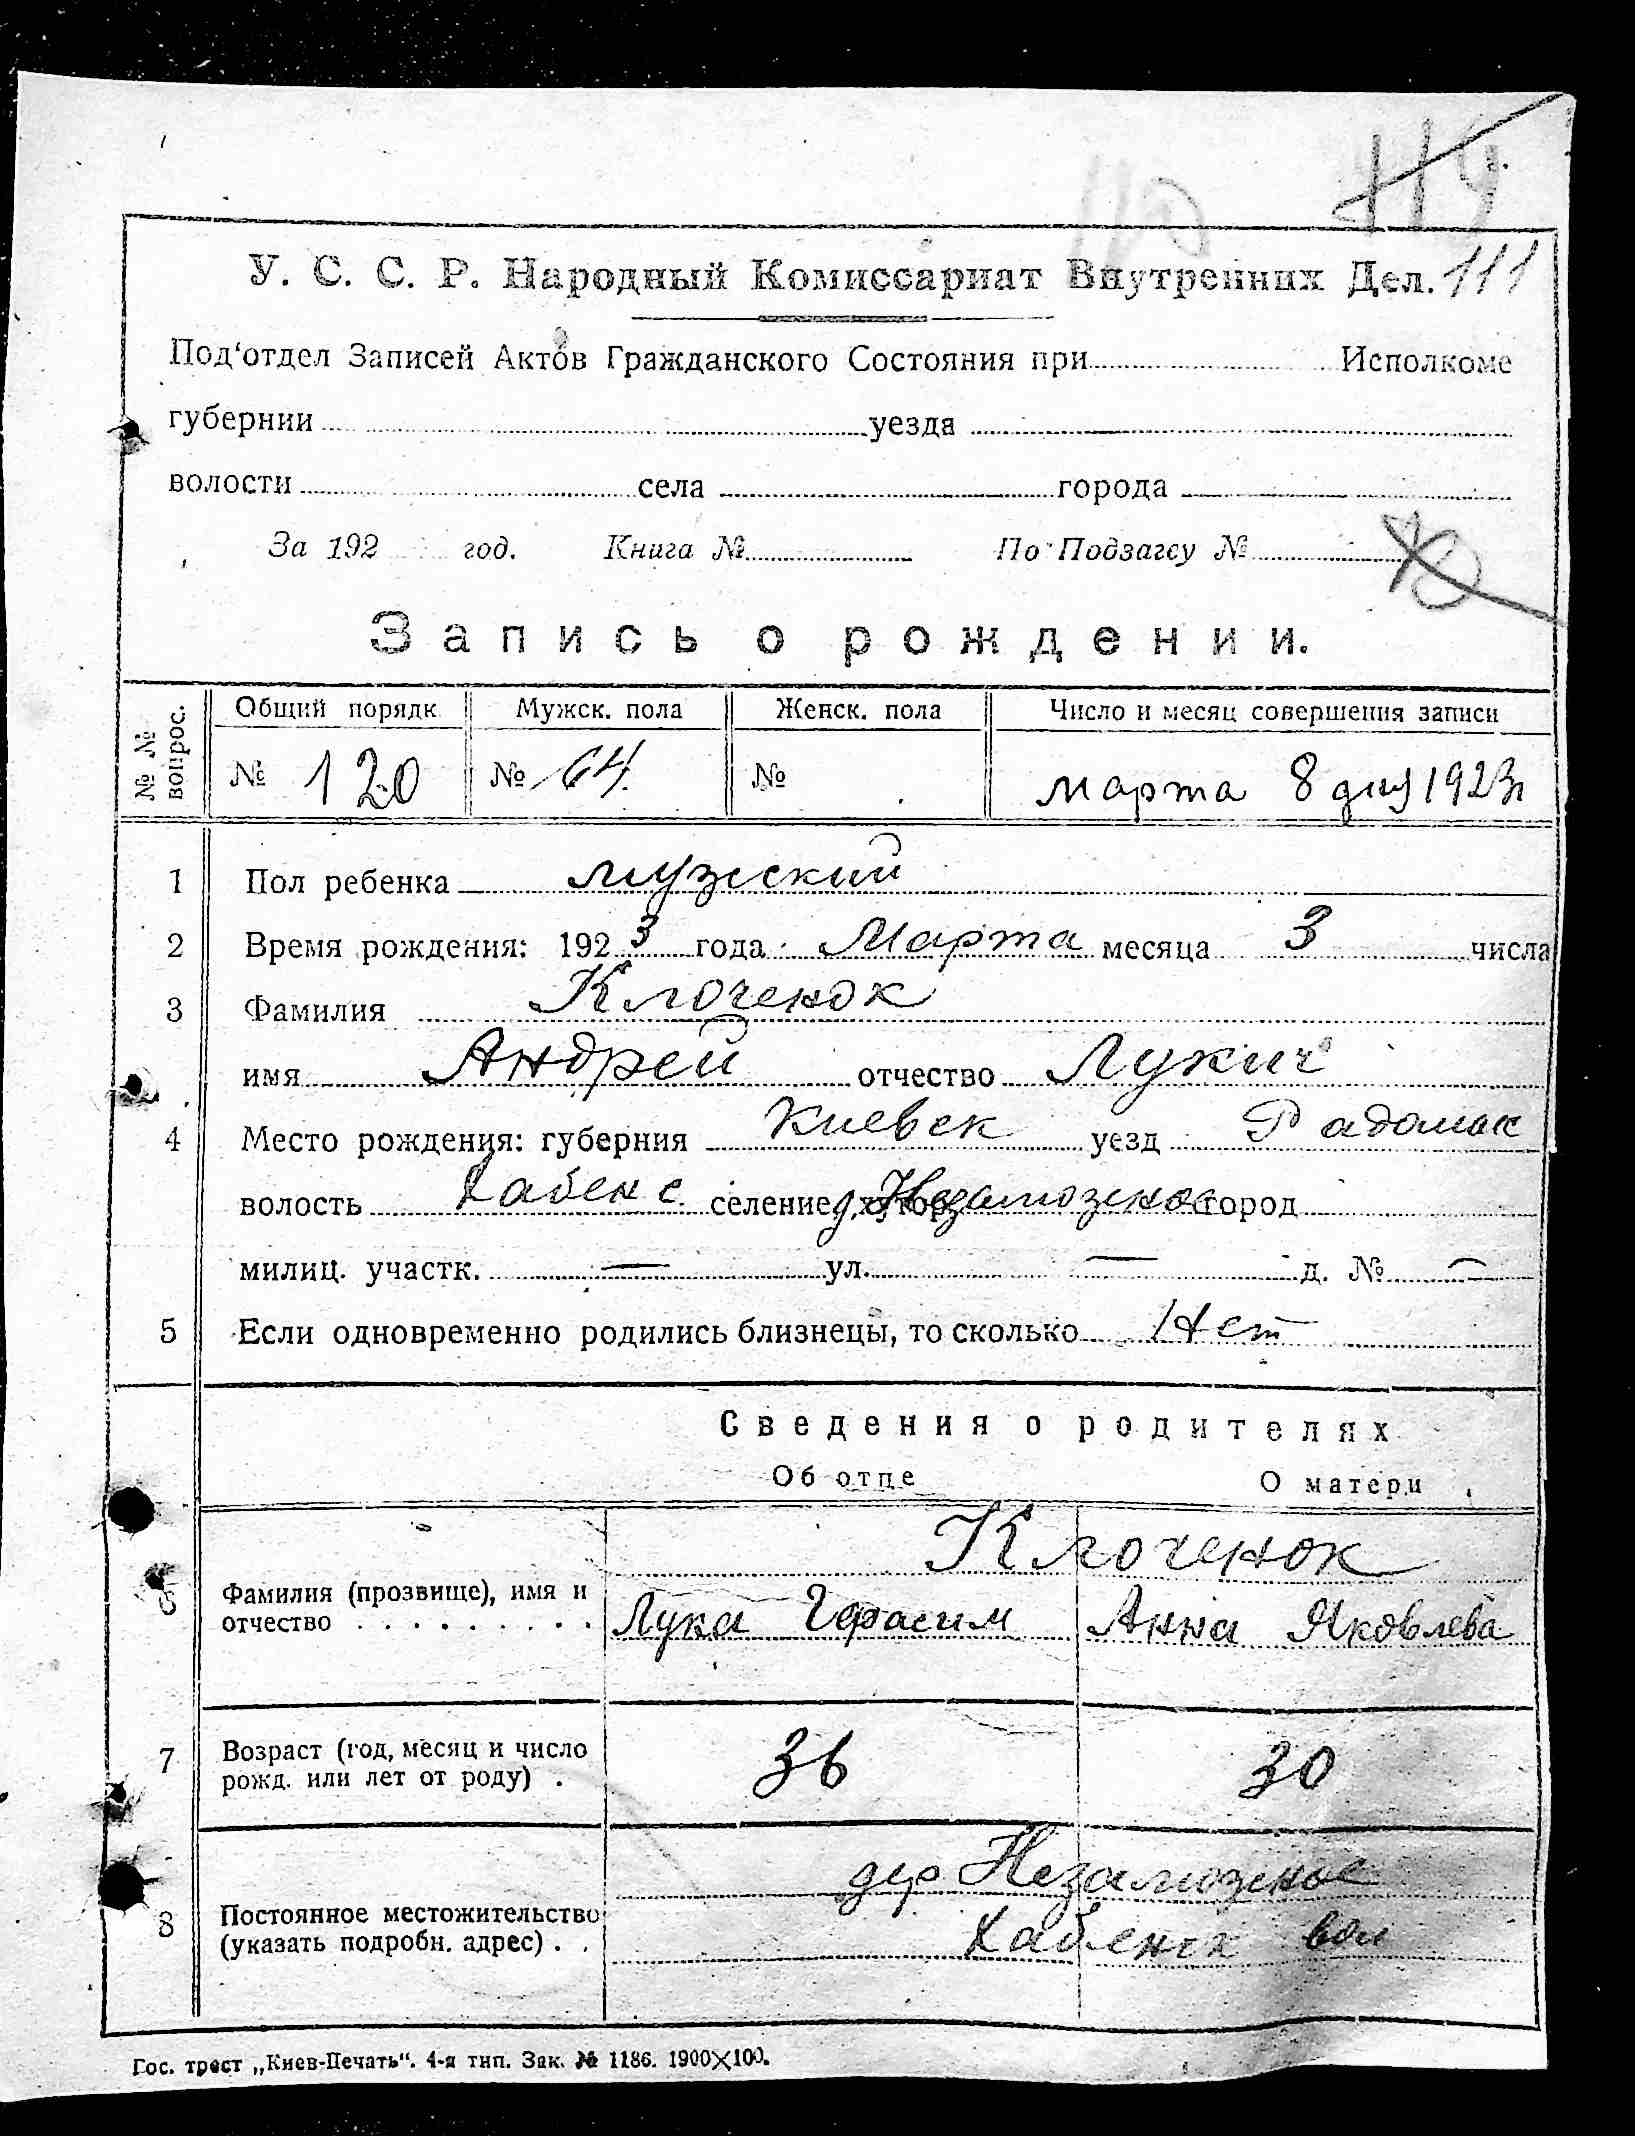 119
110
У. С. С. Р. Народный Комиссариат Внутренних Дел. 111
Под'отдел Записей Актов Гражданского Состояния при Исполкоме
губернии уезда
волости села города
За 192 год. Книга № По Подзагсу №
Запись о рождении.
№ № вопрос. Общий порядк Мужск. пола Женск. пола Число и месяц совершения записи
№ 120 № 64. № марта 8 дня 1923 г
1 Пол ребенка мужский
2 Время рождения: 192 3 года Марта месяца 3 числа
3 Фамилия Клоченок
имя Андрей отчество Лукич
4 Место рождения: губерния Киевск уезд Радомыс
волость Хабенс селение, хутор д. Незаможное город
милиц. участк. — ул. — д. № —
5 Если одновременно родились близнецы, то сколько Нет
Сведения о родителях
Об отце О матери
Клоченок
6 Фамилия (прозвище), имя и
отчество . . . . . . . . . Лука Герасим Анна Яковлева
7 Возраст (год, месяц и число
рожд. или лет от роду) . 36 30
дер Незаможное
8 Постоянное местожительство
(указать подробн. адрес) . . Хабенск вол
Гос. трест „Киев-Печать“. 4-я тип. Зак. № 1186. 1900×100.